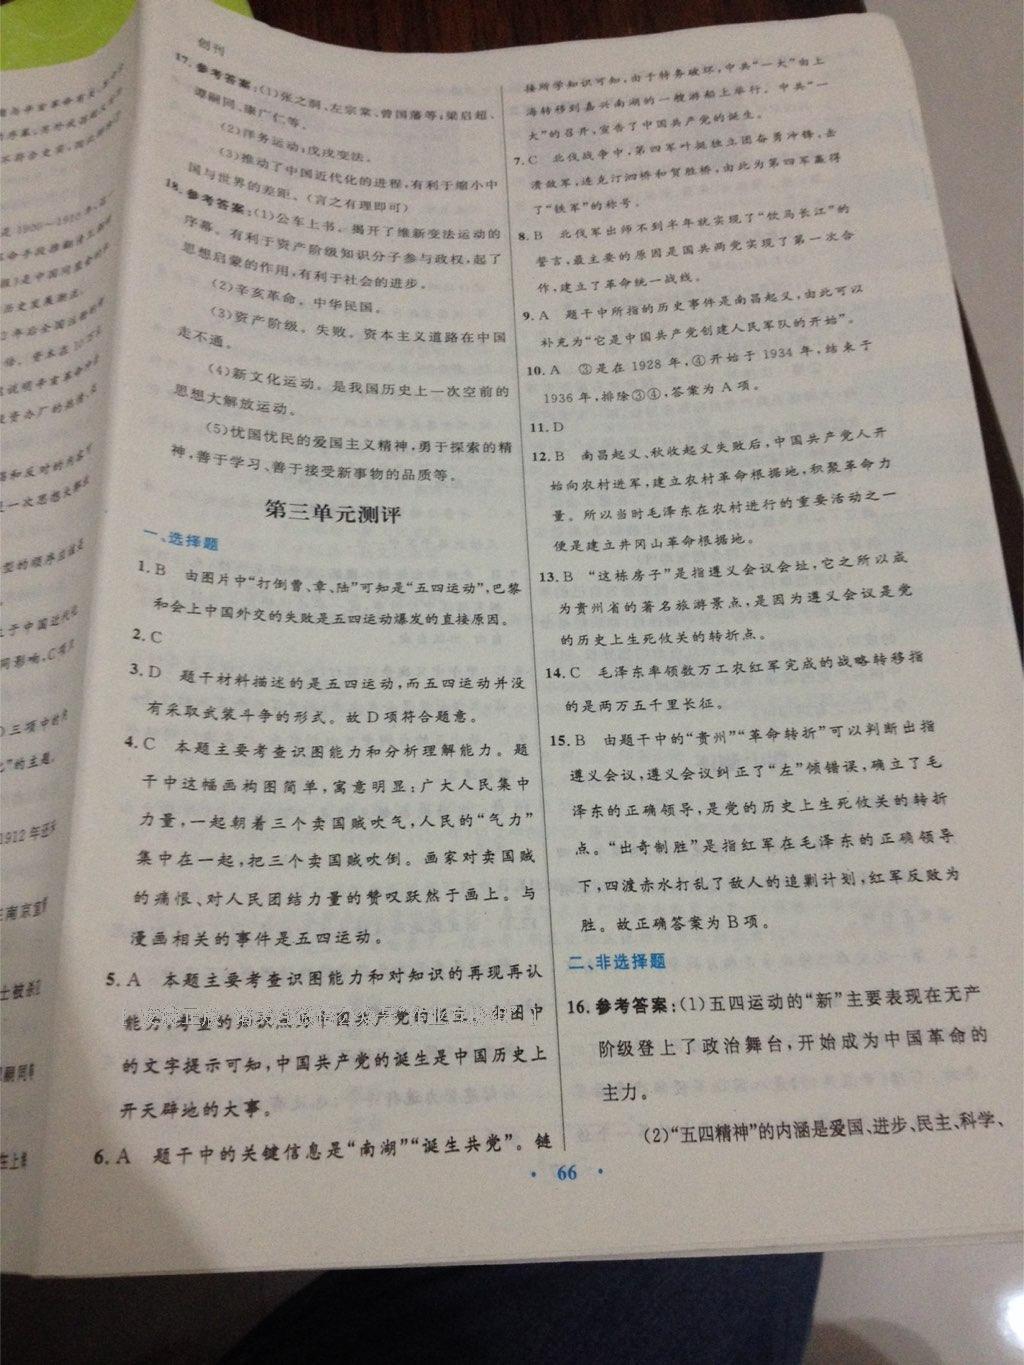 创刊
17. 参考答案:(1)张之洞、左宗棠、曾国藩等;梁启超、
谭嗣同、康广仁等。
(2)洋务运动;戊戌变法。
(3)推动了中国近代化的进程,有利于缩小中
国与世界的差距。(言之有理即可)
18. 参考答案:(1)公车上书。揭开了维新变法运动的
序幕。有利于资产阶级知识分子参与政权,起了
思想启蒙的作用,有利于社会的进步。
(2)辛亥革命。中华民国。
(3)资产阶级。失败。资本主义道路在中国
走不通。
(4)新文化运动。是我国历史上一次空前的
思想大解放运动。
(5)忧国忧民的爱国主义精神,勇于探索的精
神,善于学习、善于接受新事物的品质等。
第三单元测评
一、选择题
1. B 由图片中“打倒曹、章、陆”可知是“五四运动”,巴黎
和会上中国外交的失败是五四运动爆发的直接原因。
2. C
3. D 题干材料描述的是五四运动,而五四运动并没
有采取武装斗争的形式。故D项符合题意。
4. C 本题主要考查识图能力和分析理解能力。题
干中这幅画构图简单,寓意明显:广大人民集中
力量,一起朝着三个卖国贼吹气,人民的“气力”
集中在一起,把三个卖国贼吹倒。画家对卖国贼
的痛恨、对人民团结力量的赞叹跃然于画上。与
漫画相关的事件是五四运动。
5. A 本题主要考查识图能力和对知识的再现再认
能力,考查的知识点是中国共产党的成立。由图中
的文字提示可知,中国共产党的诞生是中国历史上
开天辟地的大事。
6. A 题干中的关键信息是“南湖”“诞生共党”。链
接所学知识可知,由于特务破坏,中共“一大”由上
海转移到嘉兴南湖的一艘游船上举行。中共“一
大”的召开,宣告了中国共产党的诞生。
7. C 北伐战争中,第四军叶挺独立团奋勇冲锋,击
溃敌军,连克汀泗桥和贺胜桥,由此为第四军赢得
了“铁军”的称号。
8. B 北伐军出师不到半年就实现了“饮马长江”的
誓言,最主要的原因是国共两党实现了第一次合
作,建立了革命统一战线。
9. A 题干中所指的历史事件是南昌起义,由此可以
补充为“它是中国共产党创建人民军队的开始”。
10. A ③是在1928年,④开始于1934年,结束于
1936年,排除③④,答案为A项。
11. D
12. B 南昌起义、秋收起义失败后,中国共产党人开
始向农村进军,建立农村革命根据地,积聚革命力
量。所以当时毛泽东在农村进行的重要活动之一
便是建立井冈山革命根据地。
13. B “这栋房子”是指遵义会议会址,它之所以成
为贵州省的著名旅游景点,是因为遵义会议是党
的历史上生死攸关的转折点。
14. C 毛泽东率领数万工农红军完成的战略转移指
的是两万五千里长征。
15. B 由题干中的“贵州”“革命转折”可以判断出指
遵义会议,遵义会议纠正了“左”倾错误,确立了毛
泽东的正确领导,是党的历史上生死攸关的转折
点。“出奇制胜”是指红军在毛泽东的正确领导
下,四渡赤水打乱了敌人的追剿计划,红军反败为
胜。故正确答案为B项。
二、非选择题
16. 参考答案:(1)五四运动的“新”主要表现在无产
阶级登上了政治舞台,开始成为中国革命的
主力。
(2)“五四精神”的内涵是爱国、进步、民主、科学、
• 66 •